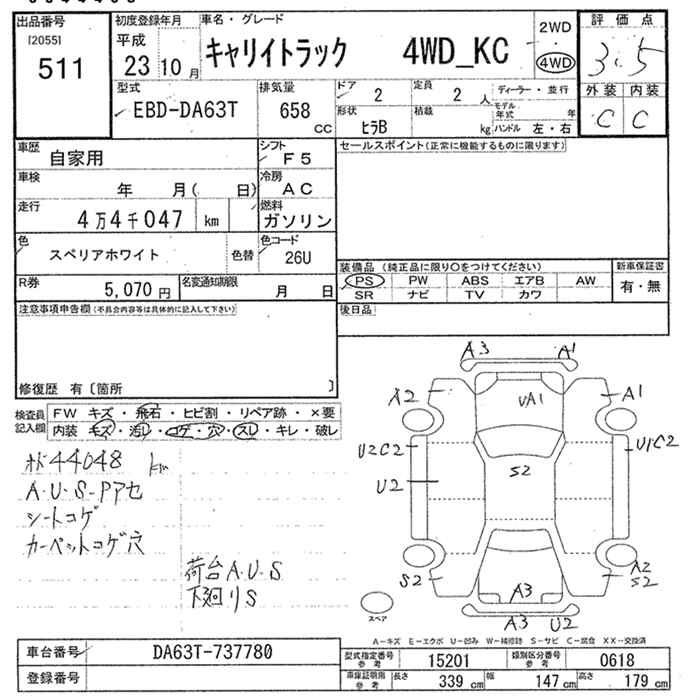 出品番号
[2055]
511
初度登録年月
平成
23 10月
車名・グレード
キャリイトラック 4WD_KC
2WD
4WD
評価点
3.5
外装 内装
C C
型式
EBD-DA63T
排気量
658 cc
ドア 2
定員 2人
ディーラー・並行
形状 ヒラB
積載 kg
モデル年式 年
ハンドル 左・右
車歴 自家用
シフト F5
セールスポイント(正常に機能するものに限ります)
車検 年 月( 日)
冷房 AC
走行 4万4千047 km
燃料 ガソリン
色 スペリアホワイト
色替
色コード 26U
装備品(純正品に限り○をつけてください)
新車保証書
PS PW ABS エアB AW
有・無
R券 5,070円
名変通知期限 月 日
SR ナビ TV カワ
後日品
注意事項申告欄(不具合内容等は具体的に記入して下さい)
修復歴 有〔箇所 〕
検査員記入欄
FW キズ・飛石・ヒビ割・リペア跡・×要
内装 キズ・汚レ・コゲ・穴・スレ・キレ・破レ
オド44048 km
A・U・S-Pアセ
シートコゲ
カーペットコゲ穴
荷台A.U.S
下廻りS
A3 A1
A2 UA1 A1
U2C2 U1C2
S2
U2
S2 A2
S2
A3
A3 U2
スペア
A-キズ E-エクボ U-凹み W-補修跡 S-サビ C-腐食 XX-交換済
車台番号 DA63T-737780
登録番号
型式指定番号 参考 15201
類別区分番号 参考 0618
車庫証明用 参考 長さ 339cm 幅 147cm 高さ 179cm